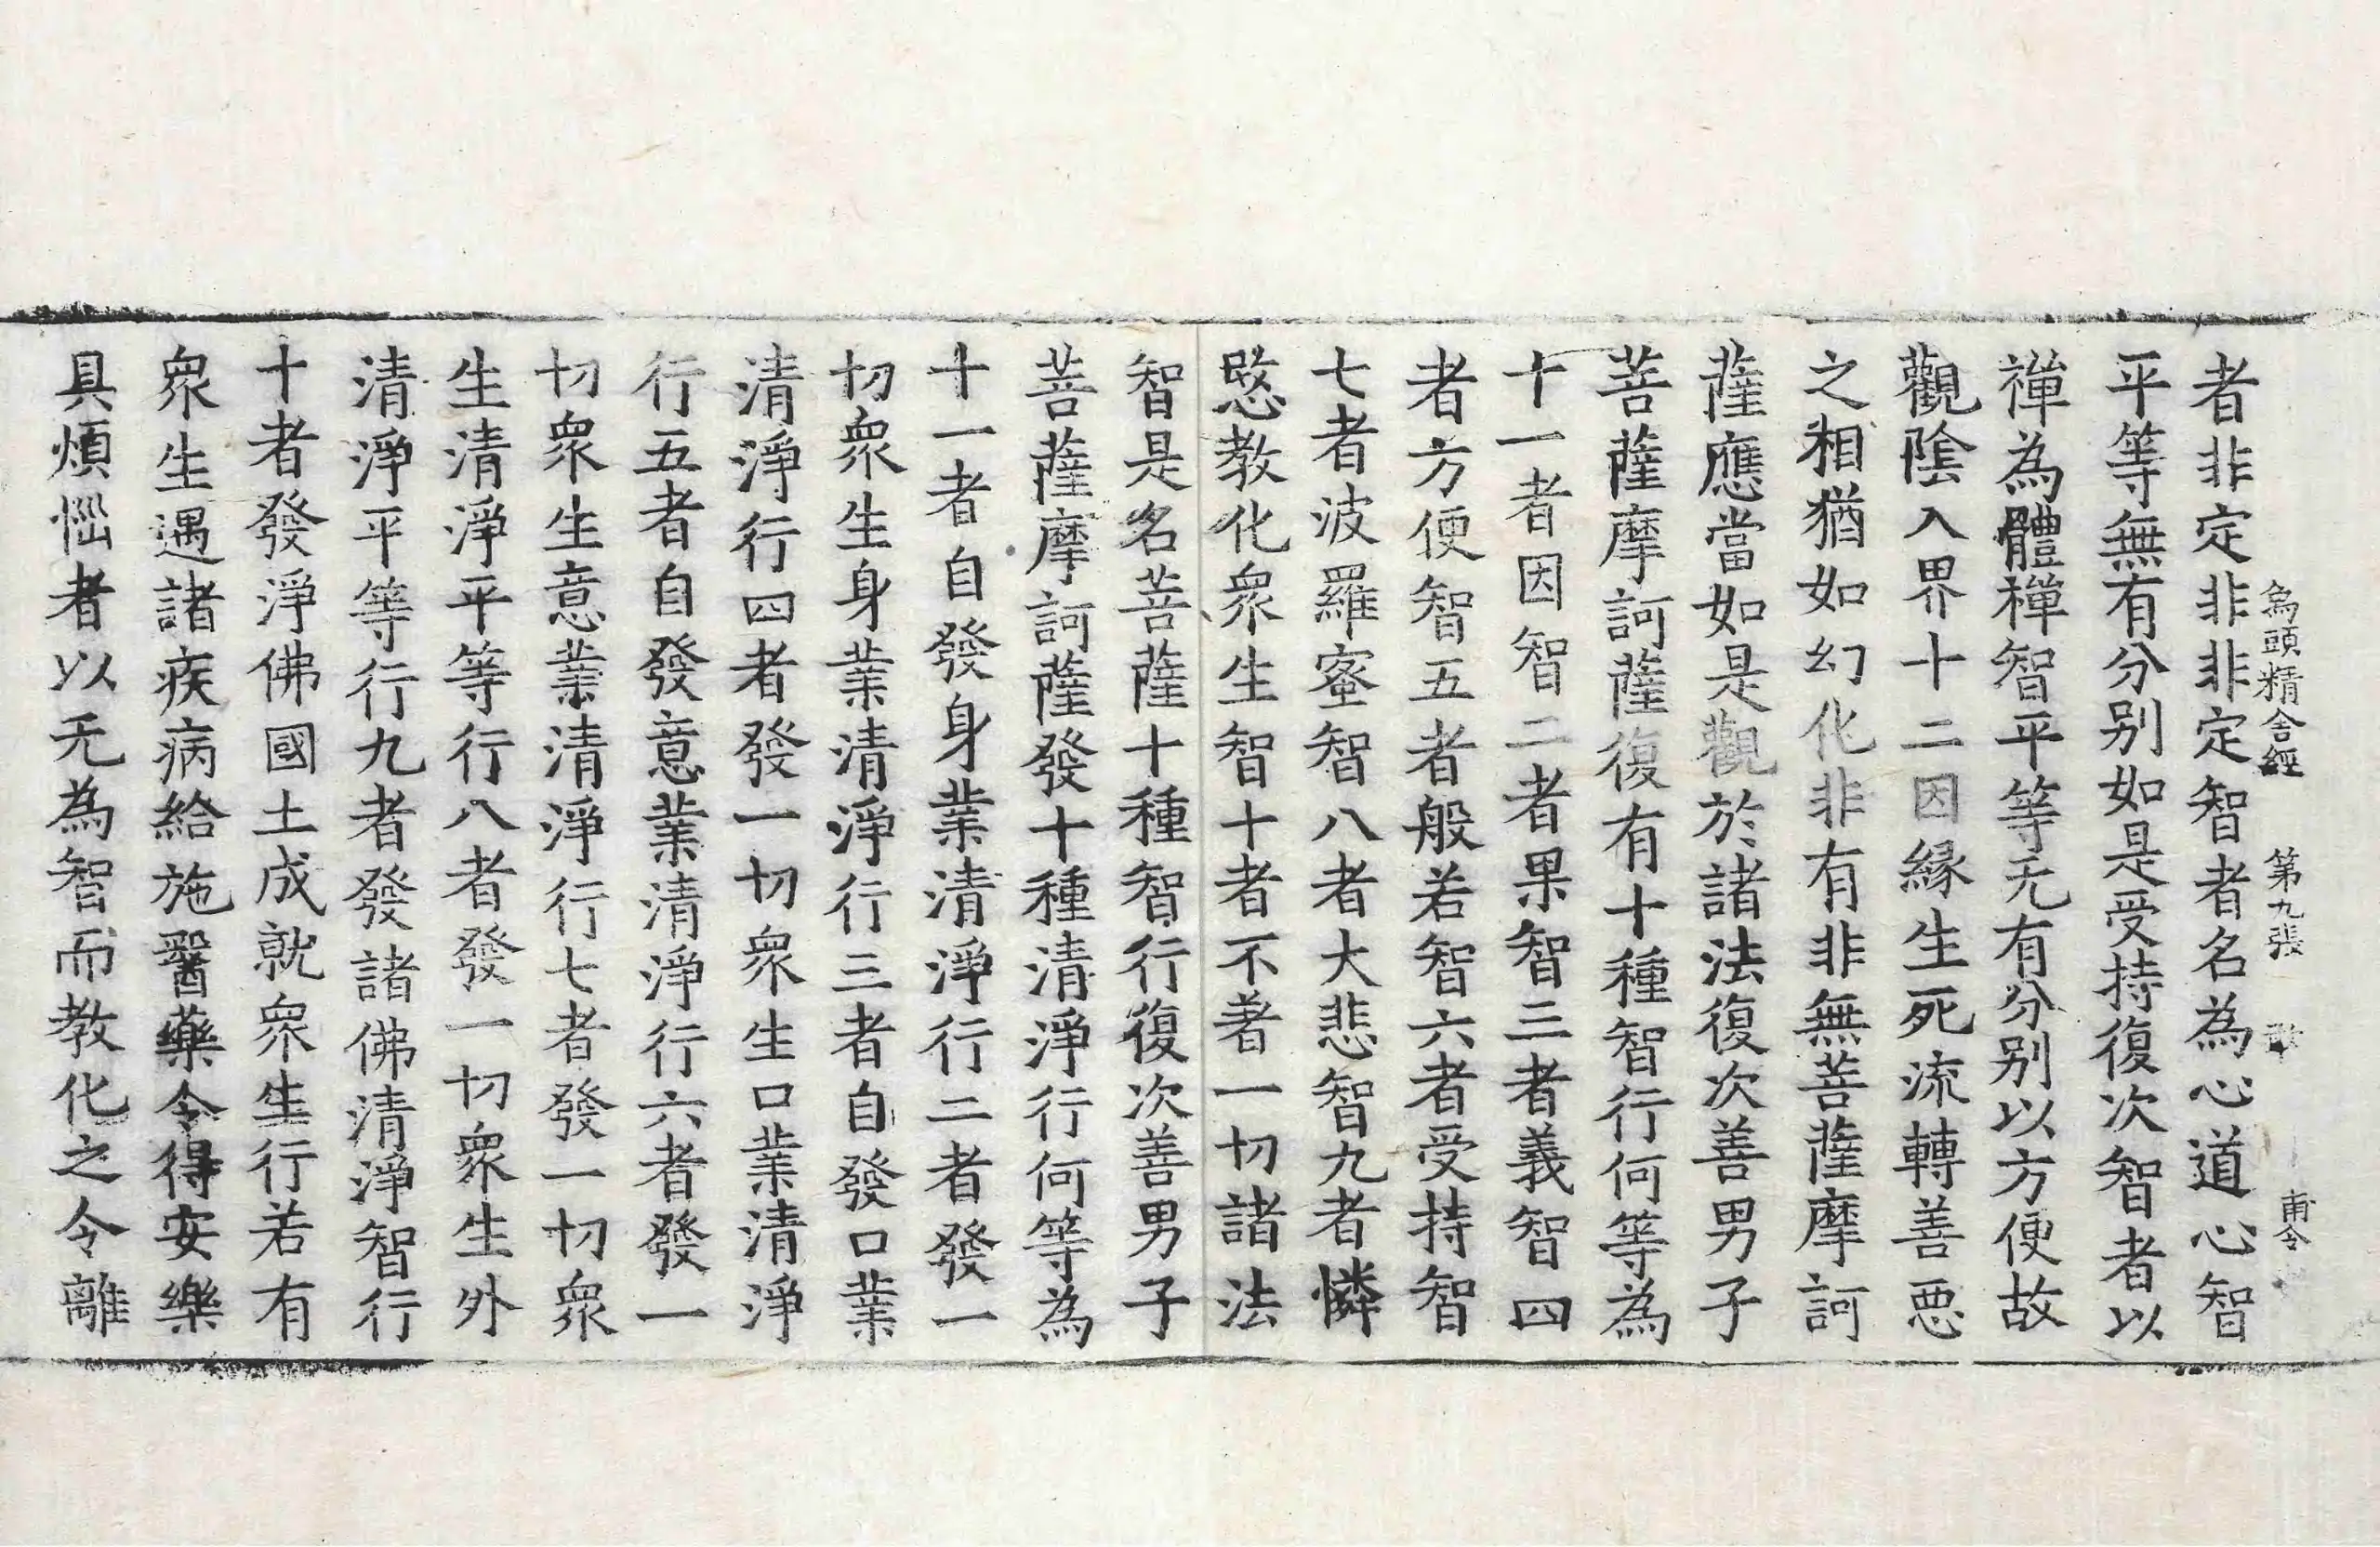 為頭精舍經 第九張 甫令
者非定非非定智者名為心道心智
平等無有分别如是受持復次智者以
禪為體禪智平等无有分别以方便故
觀陰入界十二因緣生死流轉善惡
之相猶如幻化非有非無菩薩摩訶
薩應當如是觀於諸法復次善男子
菩薩摩訶薩復有十種智行何等為
十一者因智二者果智三者義智四
者方便智五者般若智六者受持智
七者波羅蜜智八者大悲智九者憐
愍教化衆生智十者不著一切諸法
智是名菩薩十種智行復次善男子
菩薩摩訶薩發十種清淨行何等為
十一者自發身業清淨行二者發一
切衆生身業清淨行三者自發口業
清淨行四者發一切衆生口業清淨
行五者自發意業清淨行六者發一
切衆生意業清淨行七者發一切衆
生清淨平等行八者發一切衆生外
清淨平等行九者發諸佛清淨智行
十者發淨佛國土成就衆生行若有
衆生遇諸疾病給施醫藥令得安樂
具煩惱者以无為智而教化之令離